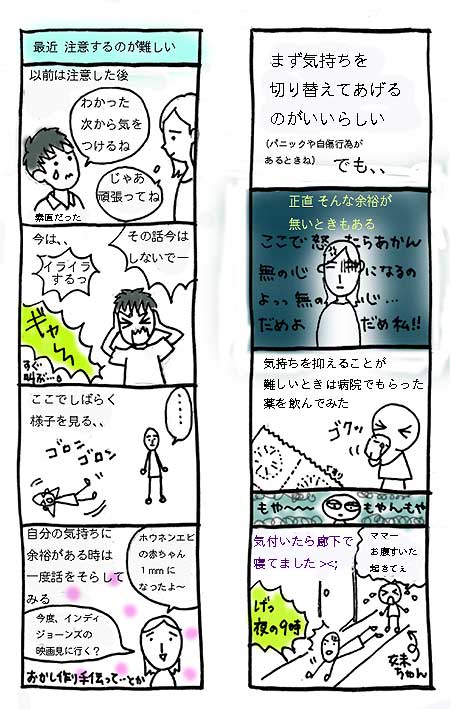 最近 注意するのが難しい
以前は注意した後
わかった
次から気を
つけるね
じゃあ
頑張ってね
素直だった
今は、、
その話今は
しないでー
イライラ
するっ
ギャーッ
すぐ
叫ぶ…。
ここでしばらく
様子を見る、、
ゴロン
ゴロン
自分の気持ちに
余裕がある時は
一度話をそらして
みる
ホウネンエビ
の赤ちゃん
1mmに
なったよ~
今度、インディ
ジョーンズの
映画見に行く?
おかし作り手伝って…とか
まず気持ちを
切り替えてあげる
のがいいらしい
(パニックや自傷行為が
あるときね)
でも、、
正直 そんな余裕が
無いときもある
ここで怒ったらあかん
無の心になるの
よっっ無の心…
だめよ だめ私!!
気持ちを抑えることが
難しいときは病院でもらった
薬を飲んでみた
ゴクッ
もや~~ もやんもや
気付いたら廊下で
寝てました ><;
ママー
お腹すいた
起きてぇ
げっ
夜の9時
妹
ちゃん